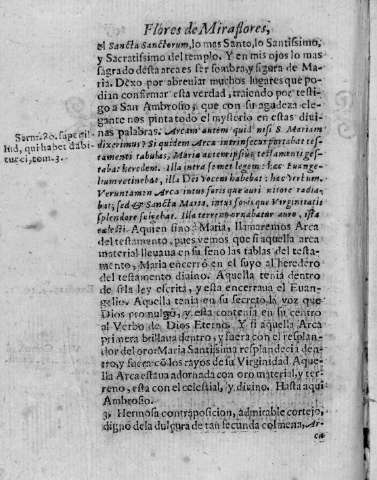 Flores de Miraflores,
el Sancta Sanctorum, lo mas Santo, lo Santissimo,
y Sacratissimo del templo. Y en mis ojos lo mas
sagrado desta arca es ser sombra, y figura de Ma-
ria. Dexo por abreuiar muchos lugares que po-
dian confirmar esta verdad, traiendo por testi-
go a San Ambrosio, que con su agudeza ele-
gante nos pinta todo el mysterio en estas divi-
nas palabras. Arcam autem quid nisi S. Mariam
Serm. 80. sup.
dixerimus? Siquidem Arca intrinsecus portabat tes-
illud, qui habet
tamenti tabulas, Maria autem ipsius testamenti ges-
tom. 3.
tabat heredem. Illa intra semet legem: hæc Euange-
lium retinebat, illa Dei vocem habebat: hæc Verbum.
Veruntamen Arca intus forisque auri nitore radia-
bat, sed & Sancta Maria, intus forisque Virginitatis
splendore fulgebat. Illa terreno ornabatur auro, ista
cælesti. A quien sino à Maria, llamaremos Arca
del testamento, pues vemos que si aquella arca
material lleuaua en su seno las tablas del testa-
mento, Maria encerró en el suyo al heredero
del testamento diuino. Aquella tenia dentro
de si la ley escrita, y esta encerraua el Euan-
gelio. Aquella tenia en su secreto la voz que
Dios promulgó, y esta contenia en su centro
al Verbo de Dios Eterno. Y si aquella Arca
primera brillaua dentro, y fuera con el resplan-
dor del oro: Maria Santissima resplandecia den-
tro, y fuera cõ los rayos de su Virginidad. Aque-
lla Arca estaua adornada con oro material, y ter-
reno, esta con el celestial, y divino. Hasta aqui
Ambrosio.
3. Hermosa contraposicion, admirable cortejo,
digno de la dulçura de tan fecunda colmena, Ar-
ca